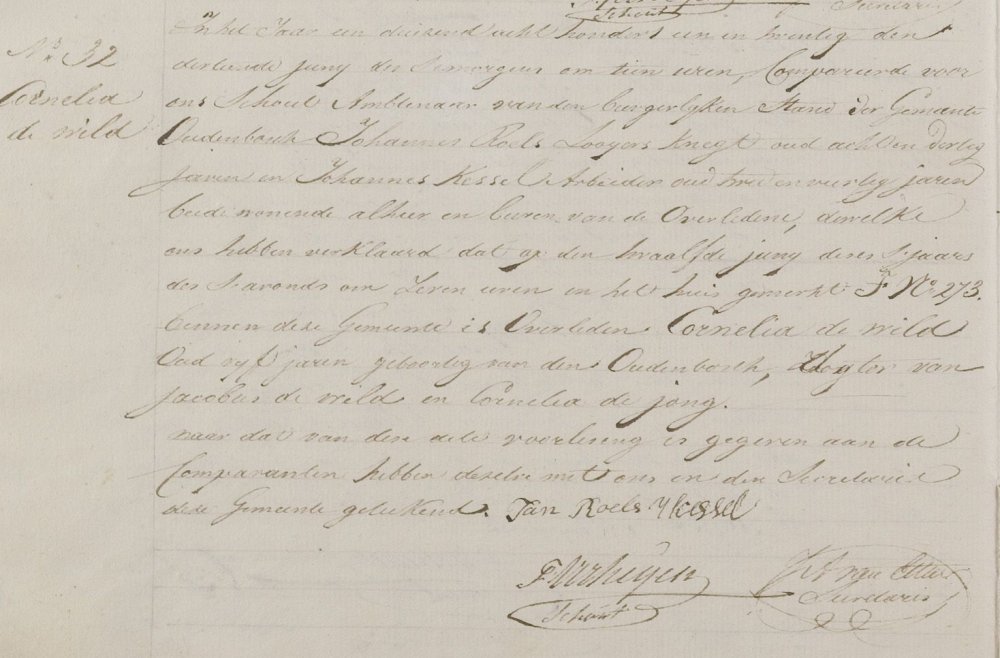 Schout Secretaris
In het Jaar een duizend acht honders een en twintig den
N° 32
dertiende juny des Smorgens om tien uren, Compareerde voor
Cornelia
ons Schout Ambtenaar van den burgerlyken Stand der Gemeente
de wild
Oudenbosch Johannes Roels Looyers Knegt oud acht en dertig
jaren en Johannes Kessel Arbeider oud twee en veertig jaren
beide wonende alhier en buren van de Overledene, dewelke
ons hebben verklaard dat op den twaalfde juny dezes s'jaars
des s'avonds om zeven uren in het huis gemerkt F N° 273.
binnen deze Gemeente is Overleden Cornelia de wild
Oud vyf jaren geboortig van den Oudenbosch, dogter van
Jacobus de wild en Cornelia de jong.
naar dat van deze acte voorlezing is gegeven aan de
Comparanten hebben dezelve met ons en den Secretaris
deze Gemeente getekend. Jan Roels J Kessel
F Verheyen
Schout Secretaris